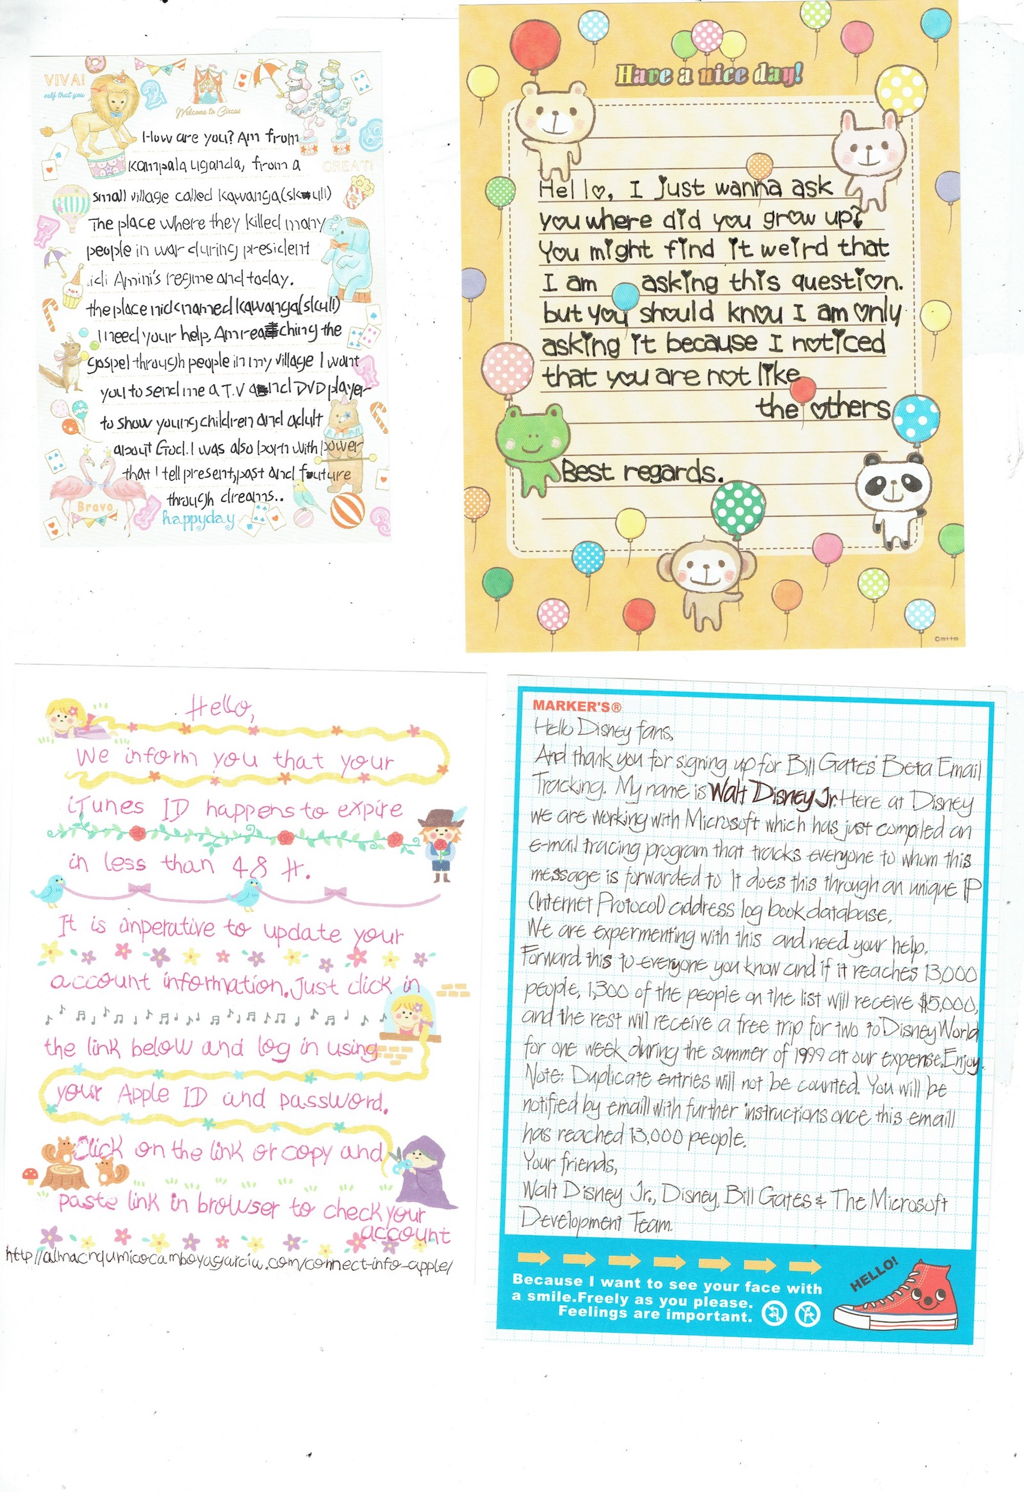 VIVA!
Welcome to Circus
GREAT!
How are you? Am from
Kampala Uganda, from a
small village called Kawanga(skuli)
The place where they killed many
people in war during president
idi Amini's regime and today.
the place nicknamed kawanga(skuli)
I need your help, Am reaching the
gospel through people in my village I want
you to send me a T.V and DVD player
to show young children and adult
about God. I was also born with power
that I tell present, past and future
through dreams..
Bravo
happyday
Have a nice day!
Hello, I just wanna ask
you where did you grow up?
You might find it weird that
I am asking this question.
but you should know I am only
asking it because I noticed
that you are not like
the others
Best regards.
©m++m
Hello,
We inform you that your
iTunes ID happens to expire
in less than 48 H.
It is imperative to update your
account information. Just click in
the link below and log in using
your Apple ID and password.
Click on the link or copy and
paste link in browser to check your
account
MARKER'S®
Hello Disney fans,
And thank you for signing up for Bill Gates' Beta Email
Tracking. My name is Walt Disney Jr. Here at Disney
we are working with Microsoft which has just compiled an
e-mail tracing program that tracks everyone to whom this
message is forwarded to It does this through an unique IP
(Internet Protocol) address log book database.
We are expermenting with this and need your help.
Forward this to everyone you know and if it reaches 13,000
people, 1,300 of the people on the list will receive $5,000,
and the rest will receive a free trip for two to Disney World
for one week during the summer of 1999 at our expense. Enjoy.
Note: Duplicate entries will not be counted. You will be
notified by emaill with further instructions once this emaill
has reached 13,000 people.
Your friends,
Walt Disney Jr., Disney, Bill Gates & The Microsoft
Development Team.
Because I want to see your face with
a smile. Freely as you please.
Feelings are important.
HELLO!